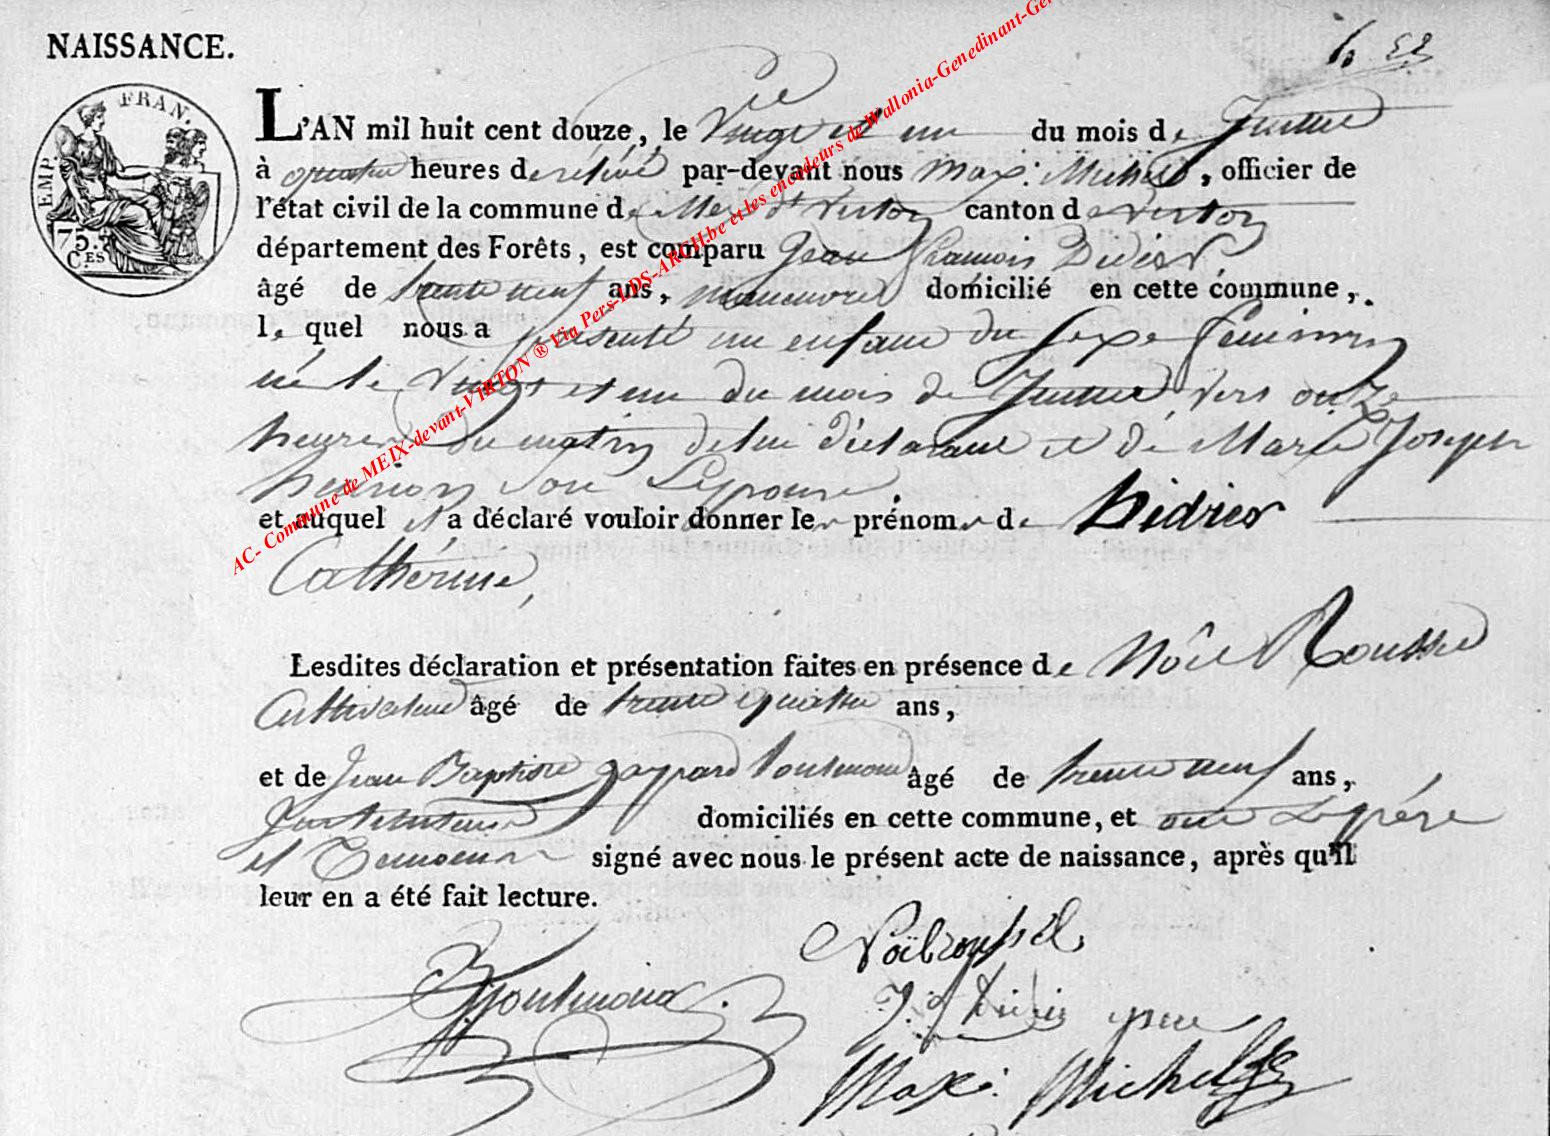 NAISSANCE.
EMP. FRAN.
75. C.ES
L'AN mil huit cent douze, le Vingt et un du mois de
à quatre heures de relevé par-devant nous Max: Michel, officier de
l'état civil de la commune de Meix dt Virton canton de Virton
département des Forêts, est comparu Jean François Didier
âgé de trente neuf ans, manœuvre domicilié en cette commune,
lequel nous a présenté un enfant du sexe feminin
né le vingt et un du mois de vers onze
heures du matin de lui déclarant et de Marie Joseph
henrion son Epouse,
et auquel il a déclaré vouloir donner les prénoms de Didier
Catherine,
Lesdites déclaration et présentation faites en présence de Nôel Roussel
Cultivateur âgé de trente quatre ans,
et de Jean Baptiste gaspard âgé de trente neuf ans,
Instituteur domiciliés en cette commune, et ont Le père
et Temoins signé avec nous le présent acte de naissance, après qu'il
leur en a été fait lecture.
Noël roussel
J. f Didier
Max: Michel
AC- Commune de MEIX-devant-VIRTON ® Via Pers-LDS-ARCH.be et les encodeurs de Wallonia-Genedinant-Ge